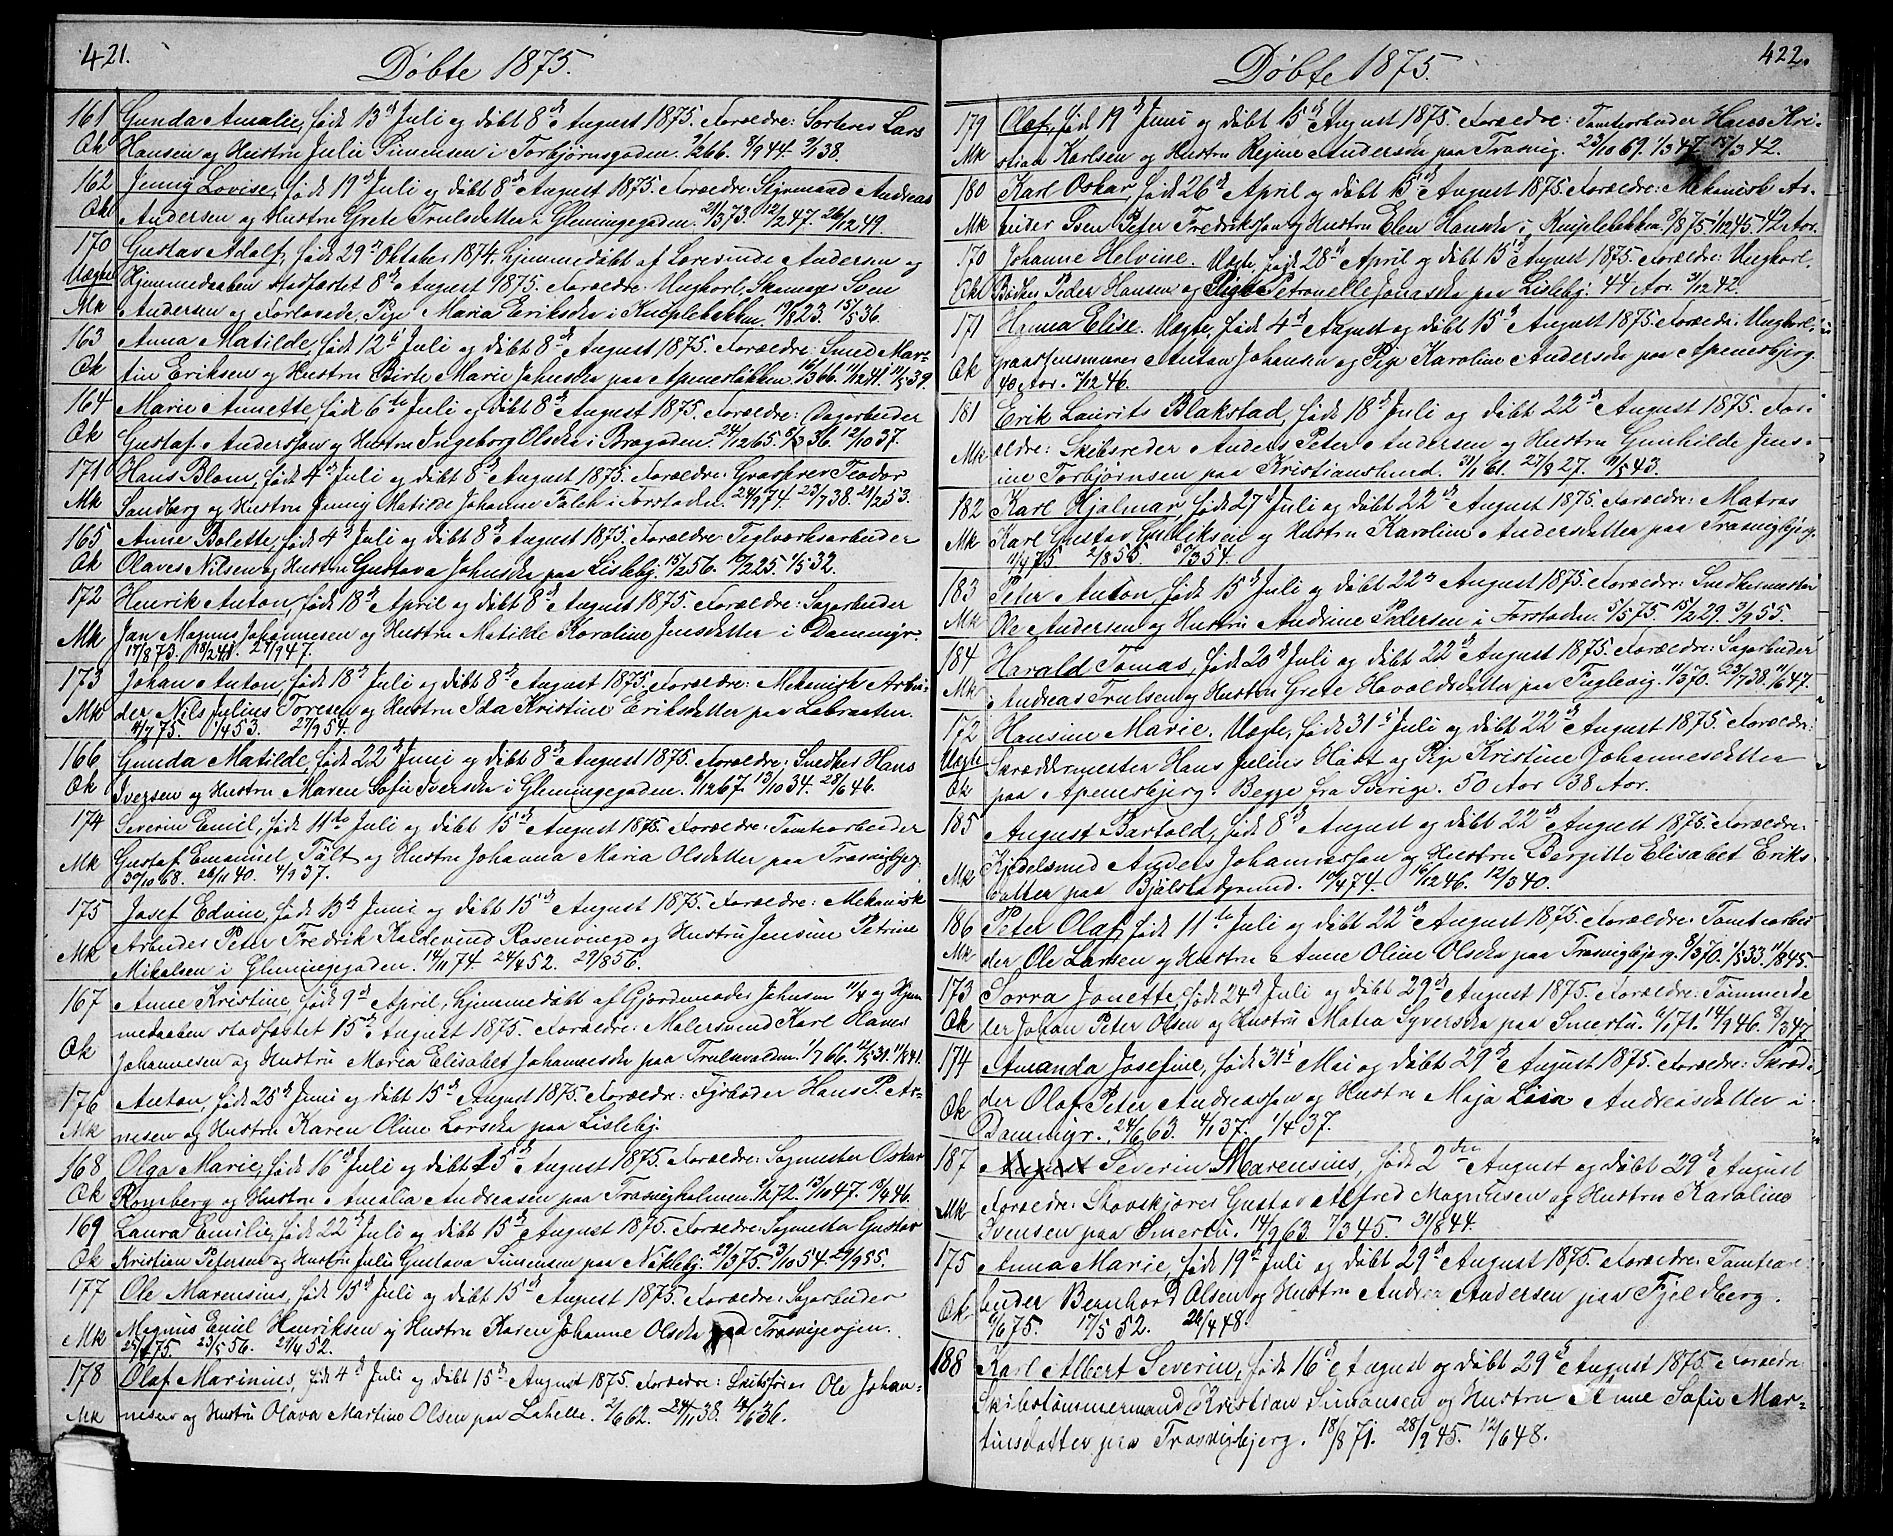 421.
Døbte 1875.
161 Gunda Amalie, født 13de Juli og døbt 8de August 1875. Forældre: Sorterer Lars
Ok Hansen og Hustru Julie Simensen i Torbjørnsgaden.
162 Jenny Lovise, født 19de Juli og døbt 8de August 1875. Forældre: Styrmand Andreas
Ok Andersen og Hustru Grete Trulsdatter i Glemmingegaden. 21/3 73. 12/2 47. 26/12 49.
170 Gustav Adolf, født 29de Oktober 1874, hjemmedøbt af Lærerinde Andersen og
Uægte Hjemmedaaben stadfæstet 8de August 1875. Forældre: Ungkarl, Skomager Sven
Mk Andersen og Forlovede, Pige Maria Eriksda i Kniplebakken. 19/8 23. 15/5 36.
163 Anna Matilde, født 12te Juli og døbt 8de August 1875. Forældre: Smed Mar-
Ok tin Eriksen og Hustru Birte Marie Johnsda paa Apenesløkken.
164 Marie Annette, født 6te Juli og døbt 8de August 1875. Forældre: Dagarbeider
Ok Gustaf Andersson og Hustru Ingeborg Olsda i Brogaden. 24/12 65. 12/10 37.
171 Hans Blom, født 4de Juli og døbt 8de August 1875. Forældre: Teodor
Mk Sandberg og Hustru Jenny Matilde Johanne Falch i Forstaden. 23/7 38. 21/2 53.
165 Anne Bolette, født 4de Juli og døbt 8de August 1875. Forældre: Teglværksarbeider
Ok Olaves Nilsen og Hustru Gustava Johnsda paa Lisleby. 15/2 56. 19/2 25. 1/5 32.
172 Henrik Anton, født 18de April og døbt 8de August 1875. Forældre: Sagarbeider
Mk Jan Magnus Johannesen og Hustru Matilde Karoline Jensdatter i Dammyr.
17/8 73. 18/2 41. 27/9 47.
173 Johan Anton, født 18de Juli og døbt 8de August 1875. Forældre: Mekanisk Arbei-
Mk der Nils Julius Toresen og Hustru Ida Kristine Eriksdatter paa Labraaten.
4/7 75. 1/4 53. 27/9 54.
166 Gunda Matilde, født 22de Juni og døbt 8de August 1875. Forældre: Snedker Hans
Ok Iversen og Hustru Maren Sofie Iversda i Glemmingegaden. 6/12 67. 13/10 34. 28/6 46.
174 Severin Emil, født 11te Juli og døbt 15de August 1875. Forældre: Tomtearbeider
Mk Gustaf Emanuel Tält og Hustru Johanna Maria Olsdatter paa Trosvigbjerg.
30/10 68. 26/11 40. 4/9 37.
175 Josef Edvin, født 13de Juni og døbt 15de August 1875. Forældre: Mekanisk
Mk Arbeider Peter Fredrik Koldevind Rosenvinge og Hustru Jensine Petrine
Mikalsen i Glemmingegaden. 14/11 74. 24/4 52. 29/8 56.
167 Anne Kristine, født 9de April, hjemmedøbt af Gjordemoder Johnsen 11/4 og Hjem-
medaaben stadfæstet 15de August 1875. Forældre: Malersvend Karl Hanes
Ok Johannesen og Hustru Maria Elisabet Johannesda paa Trulsvolden. 1/7 66. 12/5 31. 11/8 41.
176 Anton, født 25de Juni og døbt 15de August 1875. Forældre: Fyrbøder Hans P. Ar-
Mk nesen og Hustru Karen Oline Larsda paa Lisleby.
168 Olga Marie, født 16de Juli og døbt 15de August 1875. Forældre: Sagmester Oskar
Ok Kongsberg og Hustru Amalia Andreasen paa Trosvigholmen. 13/10 47. 15/4 46.
169 Laura Emilie, født 22de Juli og døbt 15de August 1875. Forældre: Sagmester Gustav
Ok Kristian Petersen og Hustru Julie Gustava Simensen paa Nøkleby. 29/3 75. 3/10 54. 29/9 55.
177 Ole Marensius, født 15de Juli og døbt 15de August 1875. Forældre: Sagarbeider
Mk Magnus Emil Henriksen og Hustru Karen Johanne Olsda paa Trosvigvejen.
23/5 56. 29/4 52.
178 Olaf Marinius, født 4de Juli og døbt 15de August 1875. Forældre: Skibsfører Ole Johan-
Mk nesen og Hustru Olava Martine Olsen paa Lahelle. 2/6 62. 24/11 38. 4/6 36.
422.
Døbte 1875.
179 Olaf, født 19de Juni og døbt 15de August 1875. Forældre: Tomtearbeider Hans Kri-
Mk stian Karlsen og Hustru Regine Andersda paa Trosvig. 23/10 69. 1/3 47. 42.
180 Karl Oskar, født 26de April og døbt 15de August 1875. Forældre: Mekanisk Ar-
Mk beider Sven Peter Fredriksson og Hustru Elen Hansda i Kniplebakken. 9/8 75. 1/12 45. 42 Aar.
170 Johanne Helvine. Uægte, født 28de April og døbt 15de August 1875. Forældre: Ungkarl,
Ok Bødker Peder Hansen og Pige Petronelle Jonasda paa Lisleby. 44 Aar. 3/12 42.
171 Hanna Elise. Uægte, født 4de August og døbt 15de August 1875. Forældre: Ungkarl,
Ok Graastensmurer Anton Johansen og Pige Karoline Andersda paa Apenesbjerg.
40 Aar. 7/12 46.
181 Erik Laurits Blakstad, født 18de Juli og døbt 22de August 1875. For-
Mk ældre: Skibsreder Anders Peter Andersen og Hustru Gunhilde Jens-
ine Torbjørnsen paa Kristianslund. 31/1 61. 27/8 27. 11/5 43.
182 Karl Hjalmar, født 27de Juli og døbt 22de August 1875. Forældre: Matros
Mk Karl Gustav Gulliksen og Hustru Karoline Andersdatter paa Trosvigbjerg.
11/4 75 2/8 55. 54.
183 Peter Anton, født 15de Juli og døbt 22de August 1875. Forældre: Snedkermester
Mk Ole Andersen og Hustru Andrine Pedersen i Forstaden. 5/5 75. 15/2 29. 3/9 55.
184 Harald Tomas, født 20de Juli og døbt 22de August 1875. Forældre: Sagarbeider
Mk Andreas Trulsen og Hustru Grete Havaldsdatter paa Fuglevig. 11/1 70. 23/7 38. 11/6 47.
172 Hansine Marie. Uægte, født 31te Juli og døbt 22de August 1875. Forældre:
Uægte Skræddermester Hans Julius Håbt og Pige Kristine Johannesdatter
Ok paa Apenesbjerg. Begge fra Sverige. 50 Aar 38 Aar.
185 August Bartold, født 8de August og døbt 22de August 1875. Forældre:
Mk Kjedelsmed Anders Johannesson og Hustru Bergitte Elisabet Eriks-
datter paa Bjølstadgrund. 10/4 74. 16/12 46. 12/3 40.
186 Peter Olaf, født 11te Juli og døbt 22de August 1875. Forældre: Tomtearbei-
Mk der Ole Larsen og Hustru Anne Oline Olsda paa Trosvigbjerg. 8/3 70. 1/5 33. 11/8 45.
173 Sorra Jonette, født 24de Juli og døbt 29de August 1875. Forældre: Tømmerde-
Ok ler Johan Peter Olsen og Hustru Matea Syversda paa Smertu. 6/1 71. 14/9 46. 8/3 47.
174 Amanda Josefine, født 31te Mai og døbt 29de August 1875. Forældre: Skræd-
Ok der Olof Peter Andreasson og Hustru Maja Lisa Andreasdatter i
Dammyr. 24/6 63. 4/1 37. 1/4 37.
187 August Severin Marensius, født 2den August og døbt 29de August
Mk Forældre: Skovskjører Gustav Alfred Magnusen og Hustru Karoline
Svensen paa Smertu. 14/9 63. 7/3 45. 31/8 44.
175 Anna Marie, født 19de Juli og døbt 29de August 1875. Forældre: Tomtear-
Ok beider Bernhard Olsen og Hustru Andrea Andersen paa Fjeldberg.
9/6 75. 17/5 52. 26/4 48.
188 Karl Albert Severin, født 16de August og døbt 29de August 1875. Forældre
Skibstømmermand Kristian Simonsen og Hustru Anne Sofie Mar-
tinsdatter paa Trosvigbjerg. 18/8 71. 28/9 45. 12/6 48.